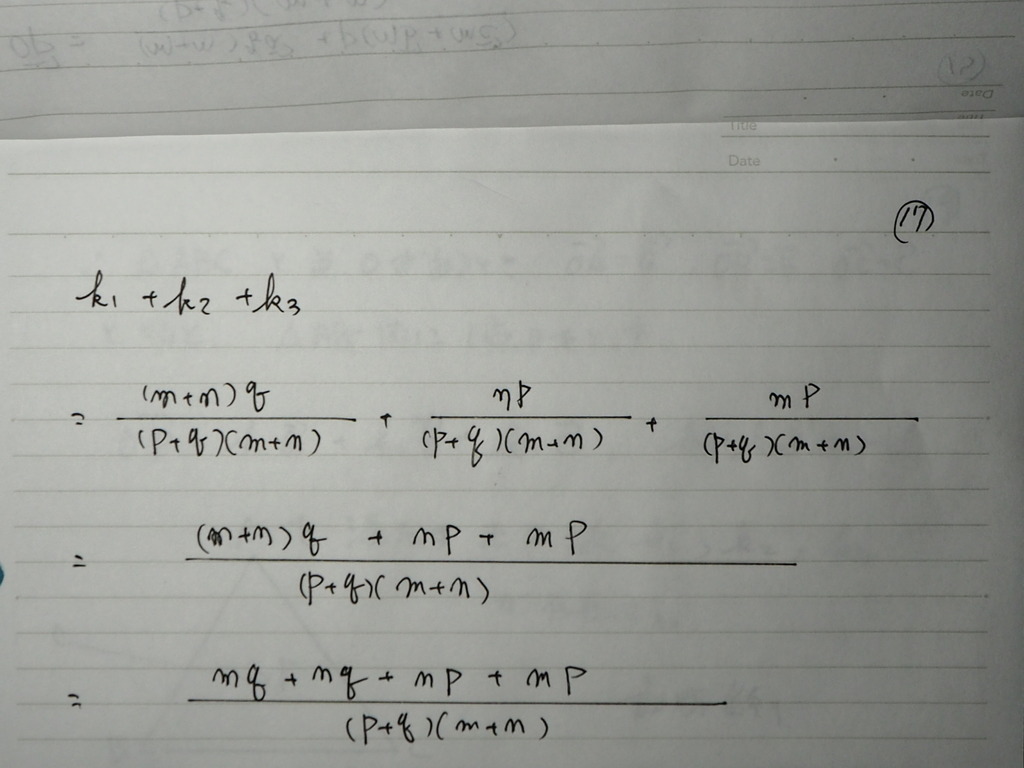 Title
Date
(17)
k1 + k2 + k3
= (m+n)q / (p+q)(m+n) + np / (p+q)(m+n) + mp / (p+q)(m+n)
= (m+n)q + np + mp / (p+q)(m+n)
= mq + nq + np + mp / (p+q)(m+n)